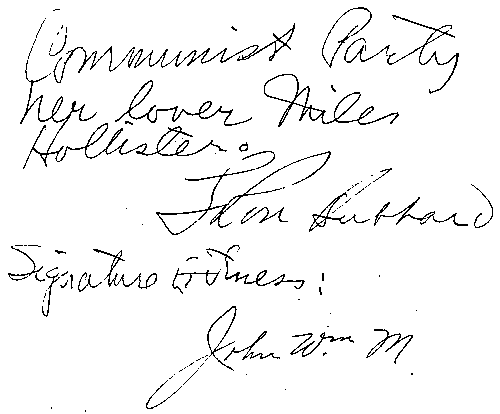 Communist Party
her lover Miles
Hollister.
L Ron Hubbard
Signature Witness:
John Wm M.